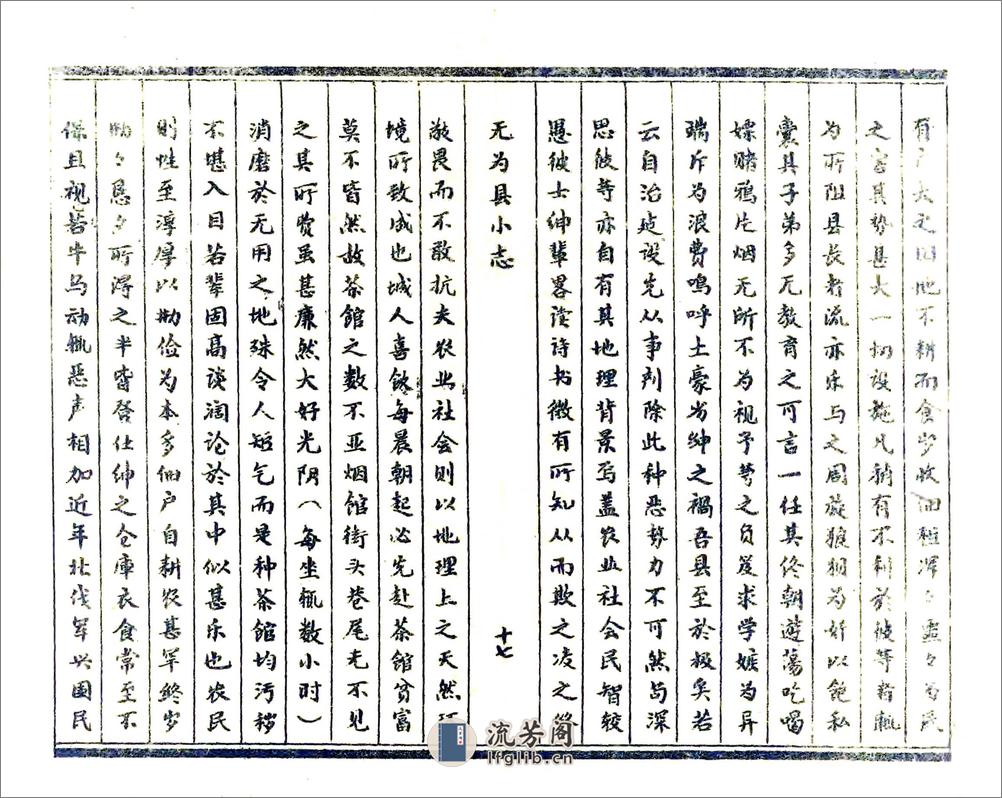 有广大之田地不耕而食步收佃租浑々噩々为民
之害其势甚大一切设施凡稍有不利於彼等者辄
为所阻县长者流亦乐与之周旋狼狈为奸以饱私
囊其子弟多无教育之可言一任其终朝遊荡吃喝
嫖赌鸦片烟无所不为视予等之负笈求学嫉为异
端斥为浪费呜呼土豪劣绅之祸吾县至於极矣若
云自治建设先从事剷除此种恶势力不可然与深
思彼等亦自有其地理背景焉盖农业社会民智较
愚彼士绅辈略读诗书微有所知从而欺之凌之
无为县小志
十七
敬畏而不敢抗夫农业社会则以地理上之天然环
境所致成也城人喜饮每晨朝起必先赴茶馆贫富
莫不皆然故茶馆之数不亚烟馆街头巷尾无不见
之其所费虽甚廉然大好光阴(每坐辄数小时)
消磨於无用之地殊令人短气而是种茶馆均污秽
不堪入目若辈固高谈阔论於其中似甚乐也农民
则性至淳厚以勤俭为本多佃户自耕农甚罕终岁
勤々恳々所得之半皆登仕绅之仓库衣食常至不
保且视若牛马动辄恶声相加近年北伐军兴国民
流芳阁
lfglib.cn